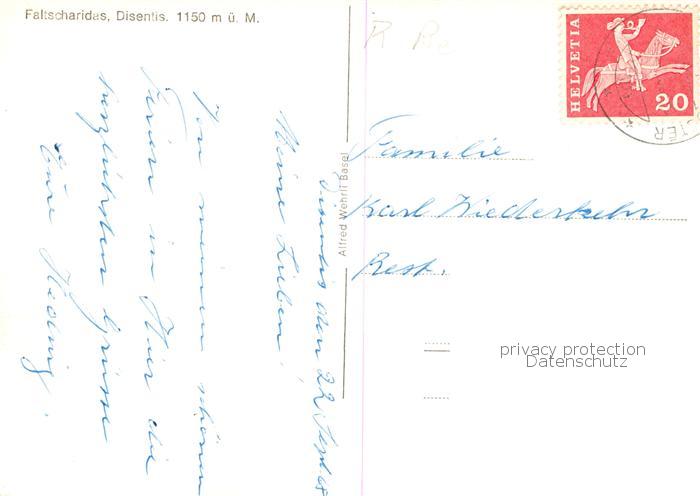 Faltscharidas, Disentis. 1150 m ü. M.
Disentis den 22. Sept. 68
Meine Lieben!
Von meinen schönen
Ferien in Hier die
herzlichsten Grüsse
Eure Hedwig.
Alfred Wehrli Basel
HELVETIA
20
Familie
Karl Wiederkehr
Rest.
privacy protection
Datenschutz